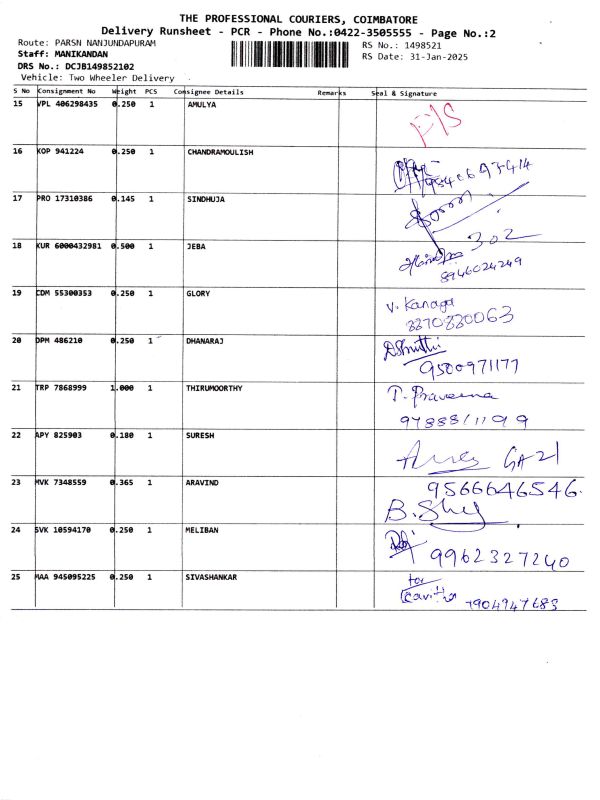 THE PROFESSIONAL COURIERS, COIMBATORE
Delivery Runsheet - PCR - Phone No.:0422-3505555 - Page No.:2
Route: PARSN NANJUNDAPURAM
RS No.: 1498521
Staff: MANIKANDAN
RS Date: 31-Jan-2025
DRS No.: DCJB149852102
Vehicle: Two Wheeler Delivery
S No Consignment No Weight PCS Consignee Details Remarks Seal & Signature
15 VPL 406298435 0.250 1 AMULYA
F/S
16 KOP 941224 0.250 1 CHANDRAMOULISH
17 PRO 17310386 0.145 1 SINDHUJA
18 KUR 6000432981 0.500 1 JEBA
302
8946024249
19 CDM 55300353 0.250 1 GLORY
V. Kanaga
8870880063
20 OPM 486210 0.250 1 DHANARAJ
9500971177
21 TRP 7868999 1.000 1 THIRUMOORTHY
T. Praveena
9788811199
22 APY 825903 0.180 1 SURESH
GA21
23 MVK 7348559 0.365 1 ARAVIND
9566646546.
24 SVK 10594170 0.250 1 MELIBAN
9962327240
25 MAA 945095225 0.250 1 SIVASHANKAR
for
Kavitha 7904947683